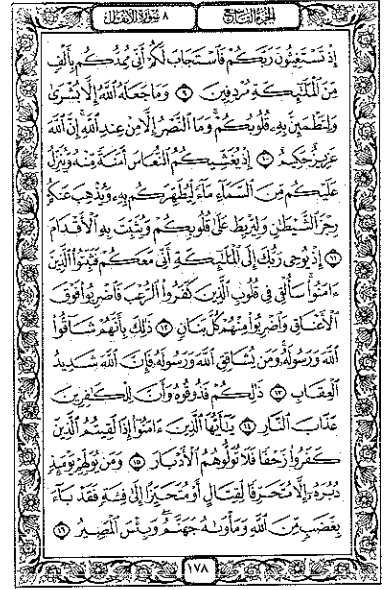 الجزء التاسع ٨ سورة الأنفال
إِذْ تَسْتَغِيثُونَ رَبَّكُمْ فَٱسْتَجَابَ لَكُمْ أَنِّى مُمِدُّكُم بِأَلْفٍ
مِّنَ ٱلْمَلَٰٓئِكَةِ مُرْدِفِينَ ۝٩ وَمَا جَعَلَهُ ٱللَّهُ إِلَّا بُشْرَىٰ
وَلِتَطْمَئِنَّ بِهِۦ قُلُوبُكُمْ وَمَا ٱلنَّصْرُ إِلَّا مِنْ عِندِ ٱللَّهِ إِنَّ ٱللَّهَ
عَزِيزٌ حَكِيمٌ ۝١٠ إِذْ يُغَشِّيكُمُ ٱلنُّعَاسَ أَمَنَةً مِّنْهُ وَيُنَزِّلُ
عَلَيْكُم مِّنَ ٱلسَّمَآءِ مَآءً لِّيُطَهِّرَكُم بِهِۦ وَيُذْهِبَ عَنكُمْ
رِجْزَ ٱلشَّيْطَٰنِ وَلِيَرْبِطَ عَلَىٰ قُلُوبِكُمْ وَيُثَبِّتَ بِهِ ٱلْأَقْدَامَ
۝١١ إِذْ يُوحِى رَبُّكَ إِلَى ٱلْمَلَٰٓئِكَةِ أَنِّى مَعَكُمْ فَثَبِّتُوا۟ ٱلَّذِينَ
ءَامَنُوا۟ سَأُلْقِى فِى قُلُوبِ ٱلَّذِينَ كَفَرُوا۟ ٱلرُّعْبَ فَٱضْرِبُوا۟ فَوْقَ
ٱلْأَعْنَاقِ وَٱضْرِبُوا۟ مِنْهُمْ كُلَّ بَنَانٍ ۝١٢ ذَٰلِكَ بِأَنَّهُمْ شَآقُّوا۟
ٱللَّهَ وَرَسُولَهُۥ وَمَن يُشَاقِقِ ٱللَّهَ وَرَسُولَهُۥ فَإِنَّ ٱللَّهَ شَدِيدُ
ٱلْعِقَابِ ۝١٣ ذَٰلِكُمْ فَذُوقُوهُ وَأَنَّ لِلْكَٰفِرِينَ
عَذَابَ ٱلنَّارِ ۝١٤ يَٰٓأَيُّهَا ٱلَّذِينَ ءَامَنُوٓا۟ إِذَا لَقِيتُمُ ٱلَّذِينَ
كَفَرُوا۟ زَحْفًا فَلَا تُوَلُّوهُمُ ٱلْأَدْبَارَ ۝١٥ وَمَن يُوَلِّهِمْ يَوْمَئِذٍ
دُبُرَهُۥٓ إِلَّا مُتَحَرِّفًا لِّقِتَالٍ أَوْ مُتَحَيِّزًا إِلَىٰ فِئَةٍ فَقَدْ بَآءَ
بِغَضَبٍ مِّنَ ٱللَّهِ وَمَأْوَىٰهُ جَهَنَّمُ وَبِئْسَ ٱلْمَصِيرُ ۝١٦
١٧٨